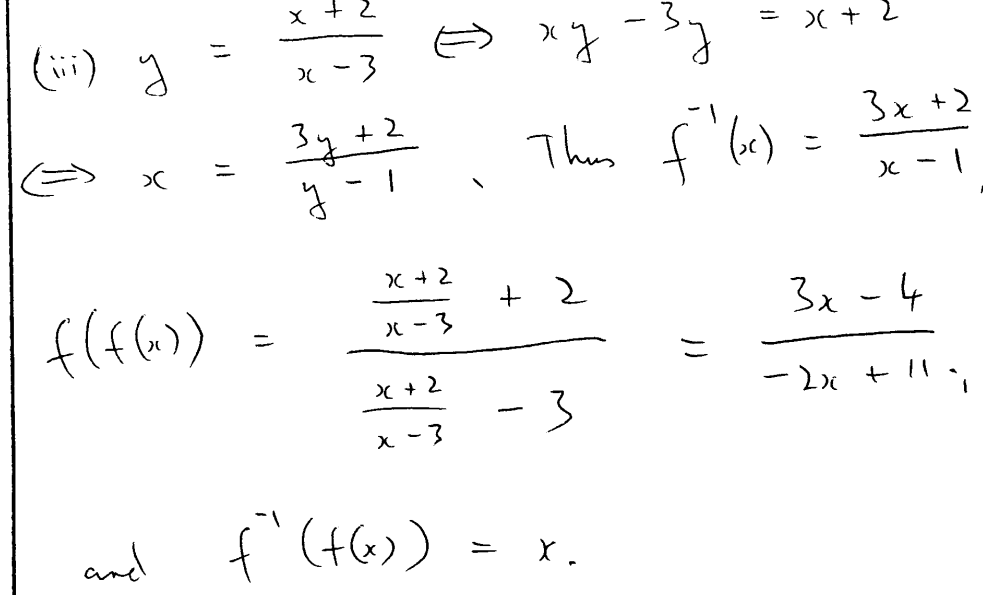 (iii) y = (x + 2)/(x - 3) ⟺ xy - 3y = x + 2
⟺ x = (3y + 2)/(y - 1). Thus f⁻¹(x) = (3x + 2)/(x - 1).
f(f(x)) = ((x + 2)/(x - 3) + 2)/((x + 2)/(x - 3) - 3) = (3x - 4)/(-2x + 11);
and f⁻¹(f(x)) = x.